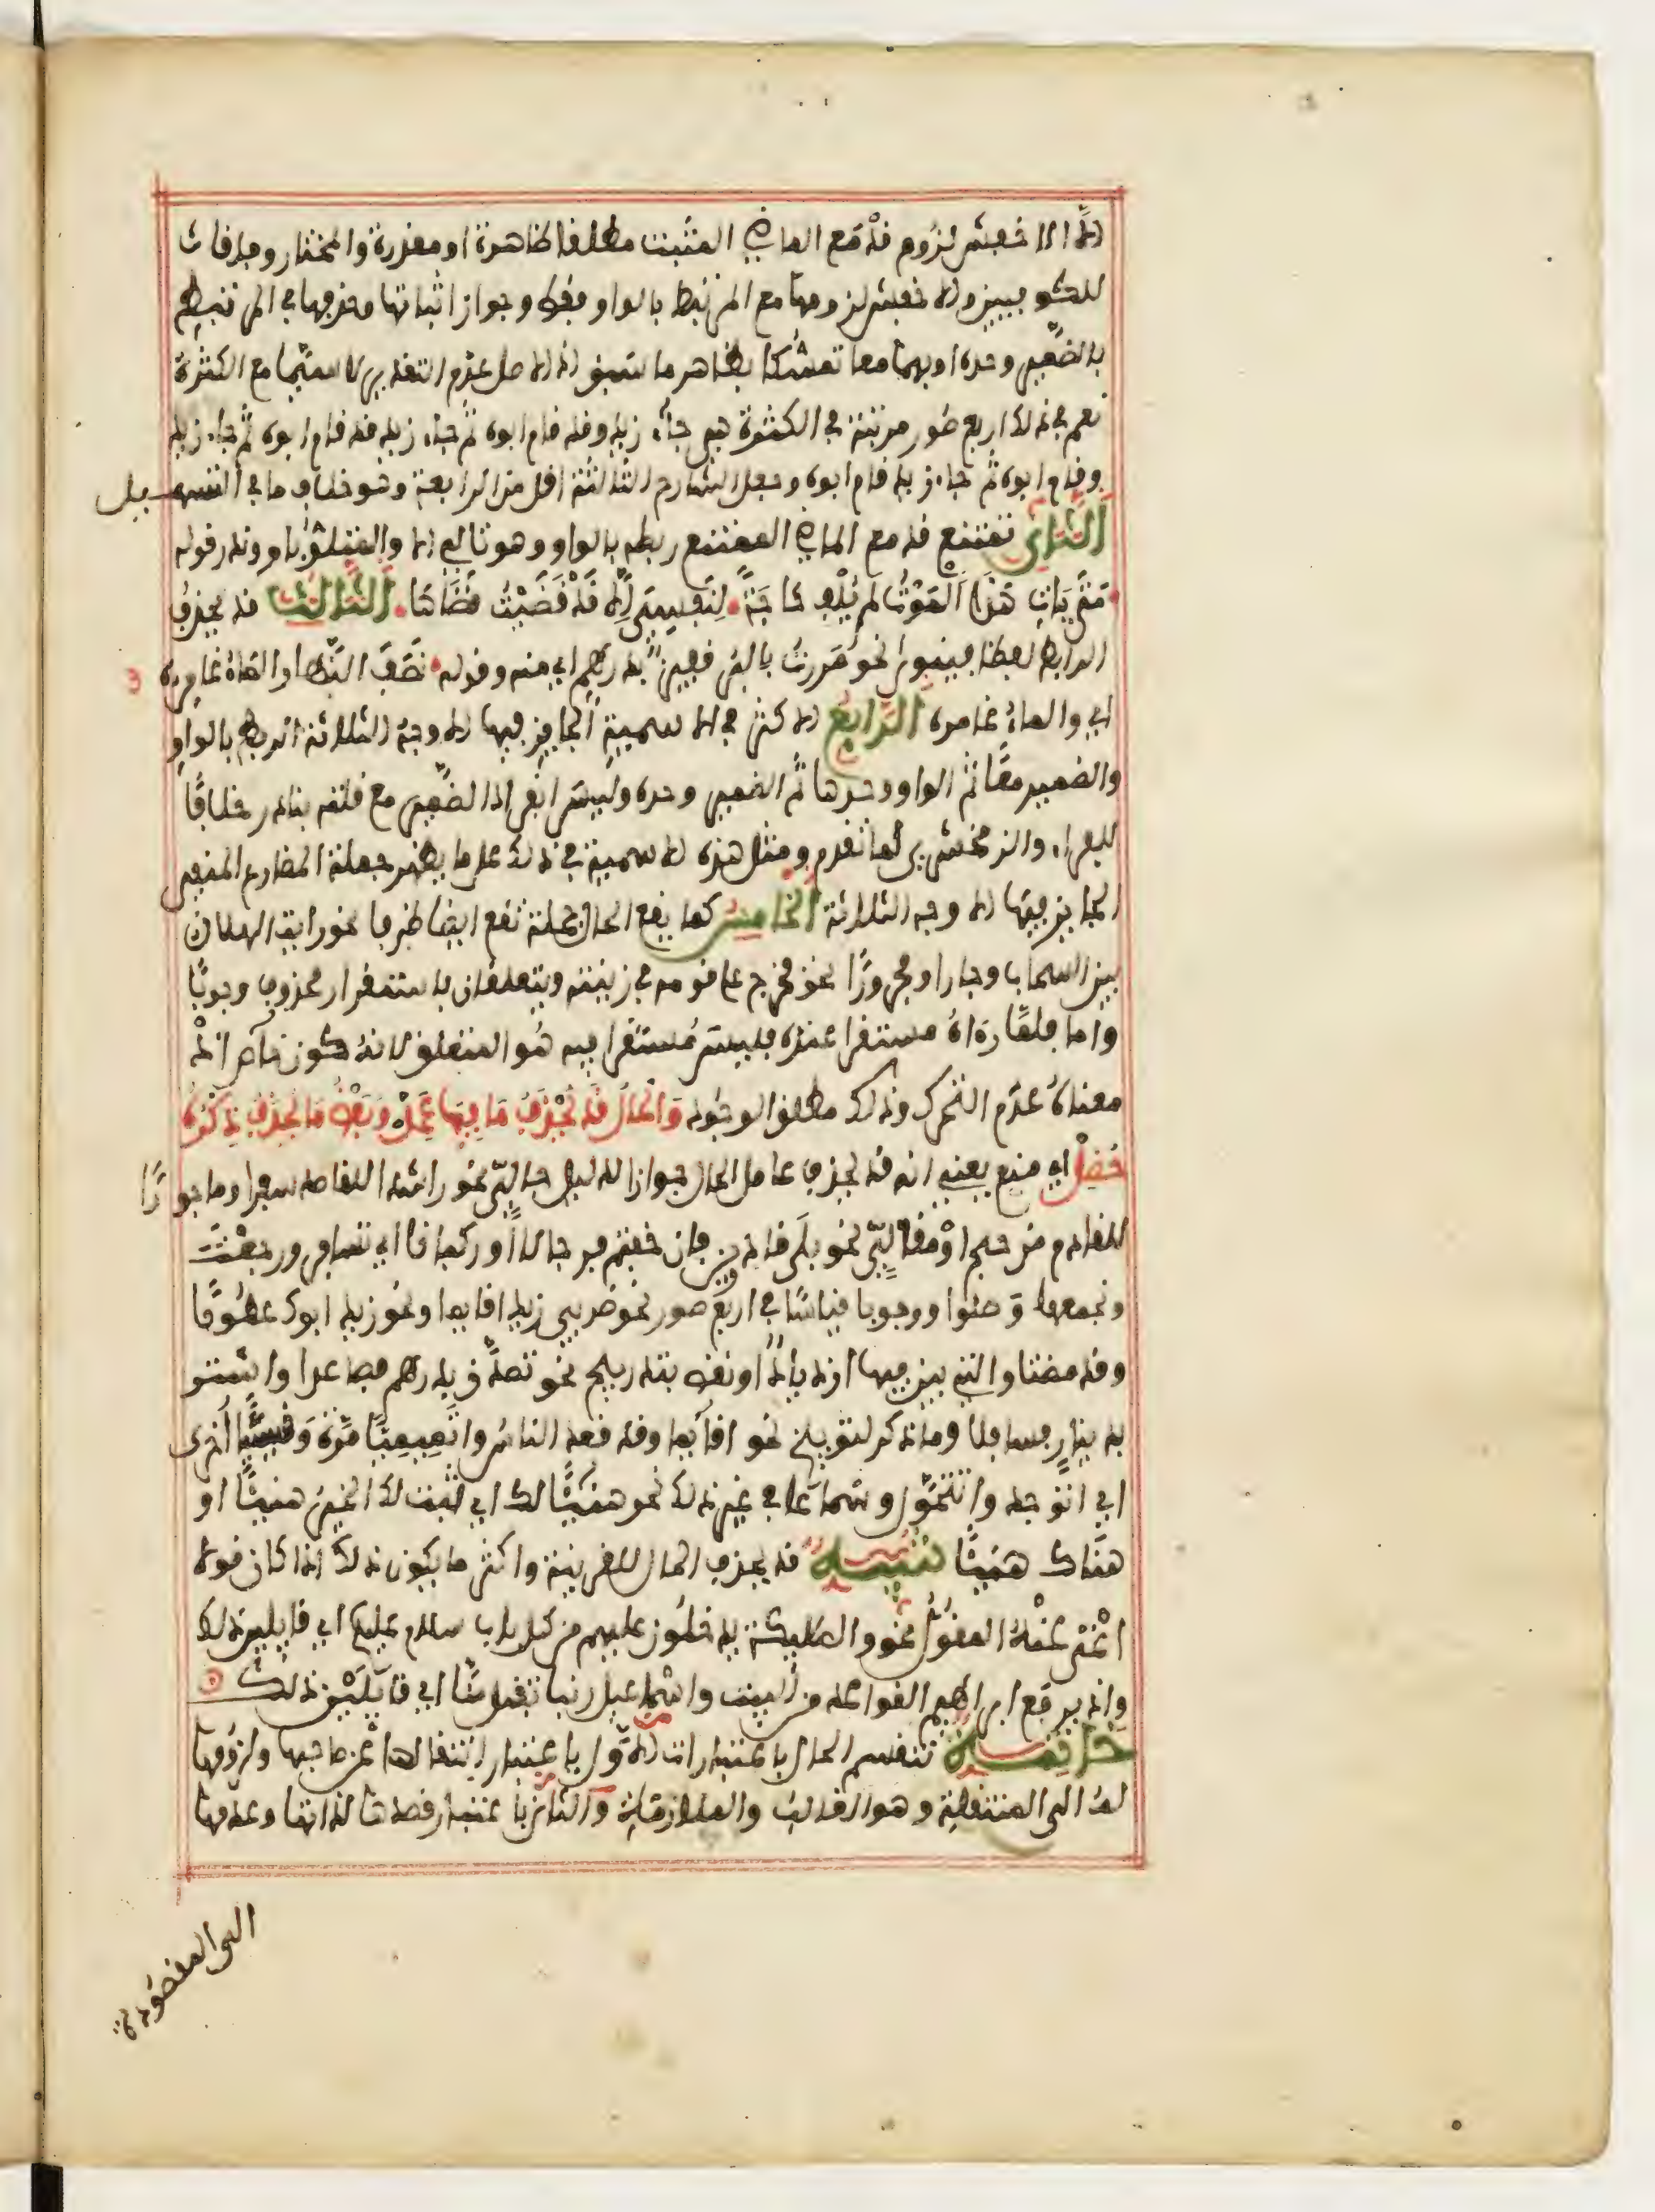 إلا الأخفش لزوم قد مع الماضي المثبت مطلقا ظاهرة او مقدرة والمختار وفاقا
للكوفيين والاخفش لزومها مع المرتبط بالواو فقط وجواز اثباتها وحذفها في المرتبط
بالضمير وحده او بهما معا تمسكا بظاهر ما سبق اذ الاصل عدم التقدير لا سيما مع الكثرة
نعم في ذلك اربع صور مرتبة في الكثرة هي جاء زيد وقد قام ابوه ثم جاء زيد قد قام ابوه ثم جاء زيد
وقام ابوه ثم جاء زيد قام ابوه وجعل الشارح الثالثة اقل من الرابعة وهو خلاف ما في التسهيل
الثاني تمتنع قد مع الماضي الممتنع ربطه بالواو وهو تالي الا والمتلو باو وندر قوله
متى يات هذا الموت لم يلف حاجة لنفسي الا قد قضيت قضاها الثالث قد يحذف
الرابط لفظا فينوى نحو مررت بالبر قفيز بدرهم اي منه وقوله نصف النهار الماء غامره
اي والماء غامره الرابع الاكثر في الاسمية الجايز فيها الاوجه الثلاثة الربط بالواو
والضمير معا ثم الواو وحدها ثم الضمير وحده وليس انفراد الضمير مع قلته بنادر خلافا
للفراء والزمخشري لما تقدم ومثل هذه الاسمية في ذلك على ما يظهر جملة المضارع المنفي
الجايز فيها الاوجه الثلاثة الخامس كما يقع الحال جملة تقع ايضا ظرفا نحو رايت الهلال
بين السحاب وجارا ومجرورا نحو فخرج على قومه في زينته ويتعلقان باستقرار محذوف وجوبا
واما فلما رءاه مستقرا عنده فليس مستقرا فيه هو المتعلق لانه كون خاص اذ
معناه عدم التحرك وذلك مطلق الوجود والحال قد يحذف ما فيها عمل وبعض ما يحذف ذكره
حظل اي منع يعني انه قد يحذف عامل الحال جوازا لدليل حالي نحو راشدا للقاصد سفرا وماجورا
للقادم من حج او مقالي نحو بلى قادرين فان خفتم فرجالا او ركبانا اي تسافر ورجعت
ونجمعها وصلوا ووجوبا قياسا في اربع صور نحو ضربي زيدا قايما ونحو زيد ابوك عطوفا
وقد مضتا والتي بين فيها ازدياد او نقص بتدريج نحو تصدق بدرهم فصاعدا واشتر
بدينار فسافلا وما ذكر لتوبيخ نحو اقايما وقد قعد الناس واتميميا مرة وقيسيا اخرى
اي اتوجد واتتحول وسماعا في غير ذلك نحو هنيئا لك اي ثبت لك الخير هنيئا او
هناك هنيئا تنبيه قد يحذف الحال للقرينة واكثر ما يكون ذلك اذا كان قولا
اغنى عنه المقول نحو والملئكة يدخلون عليهم من كل باب سلام عليكم اي قايلين ذلك
واذ يرفع ابراهيم القواعد من البيت واسماعيل ربنا تقبل منا اي قايلين ذلك
خاتمة تنقسم الحال باعتبارات الاول باعتبار انتقالها عن صاحبها ولزومها
له الى المنتقلة وهو الغالب والملازمة والثاني باعتبار قصدها لذاتها وعدمها
الى المقصودة